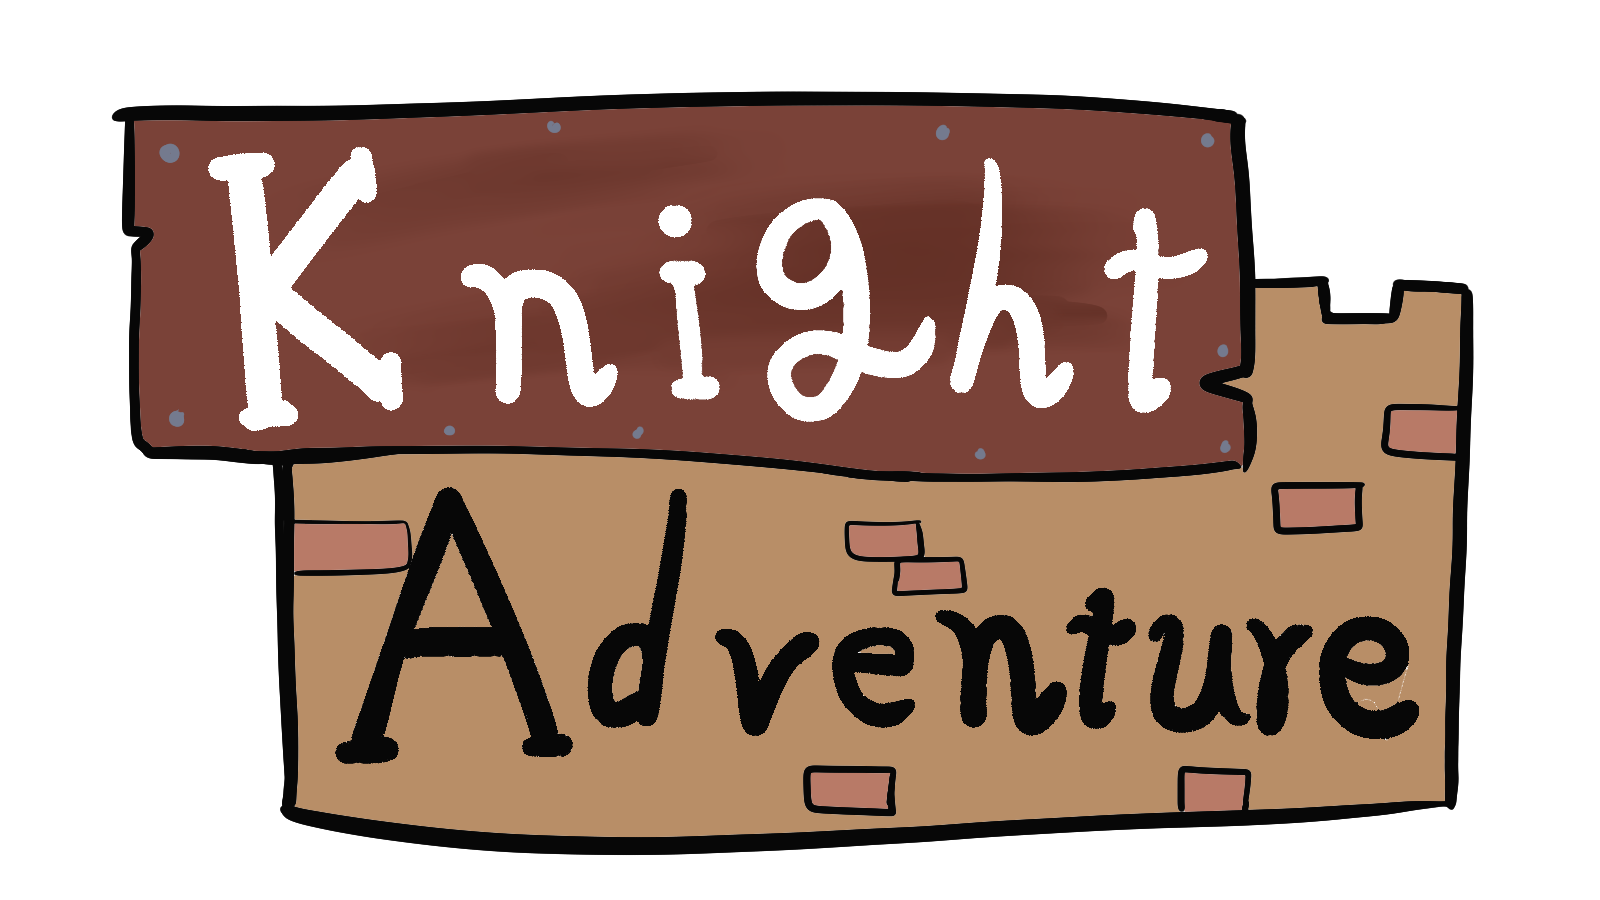 Knight
Adventure